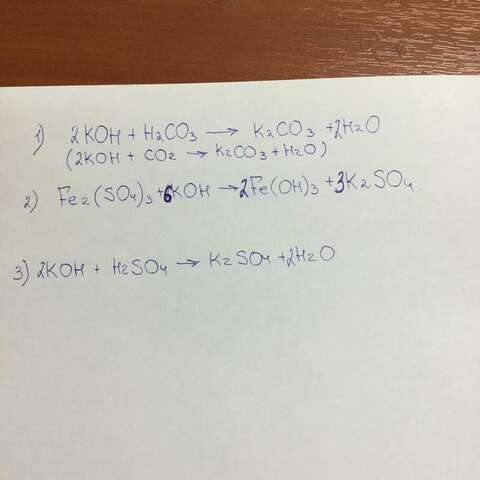 1) 2KOH + H2CO3 → K2CO3 + 2H2O
(2KOH + CO2 → K2CO3 + H2O)
2) Fe2(SO4)3 + 6KOH → 2Fe(OH)3 + 3K2SO4.
3) 2KOH + H2SO4 → K2SO4 + 2H2O